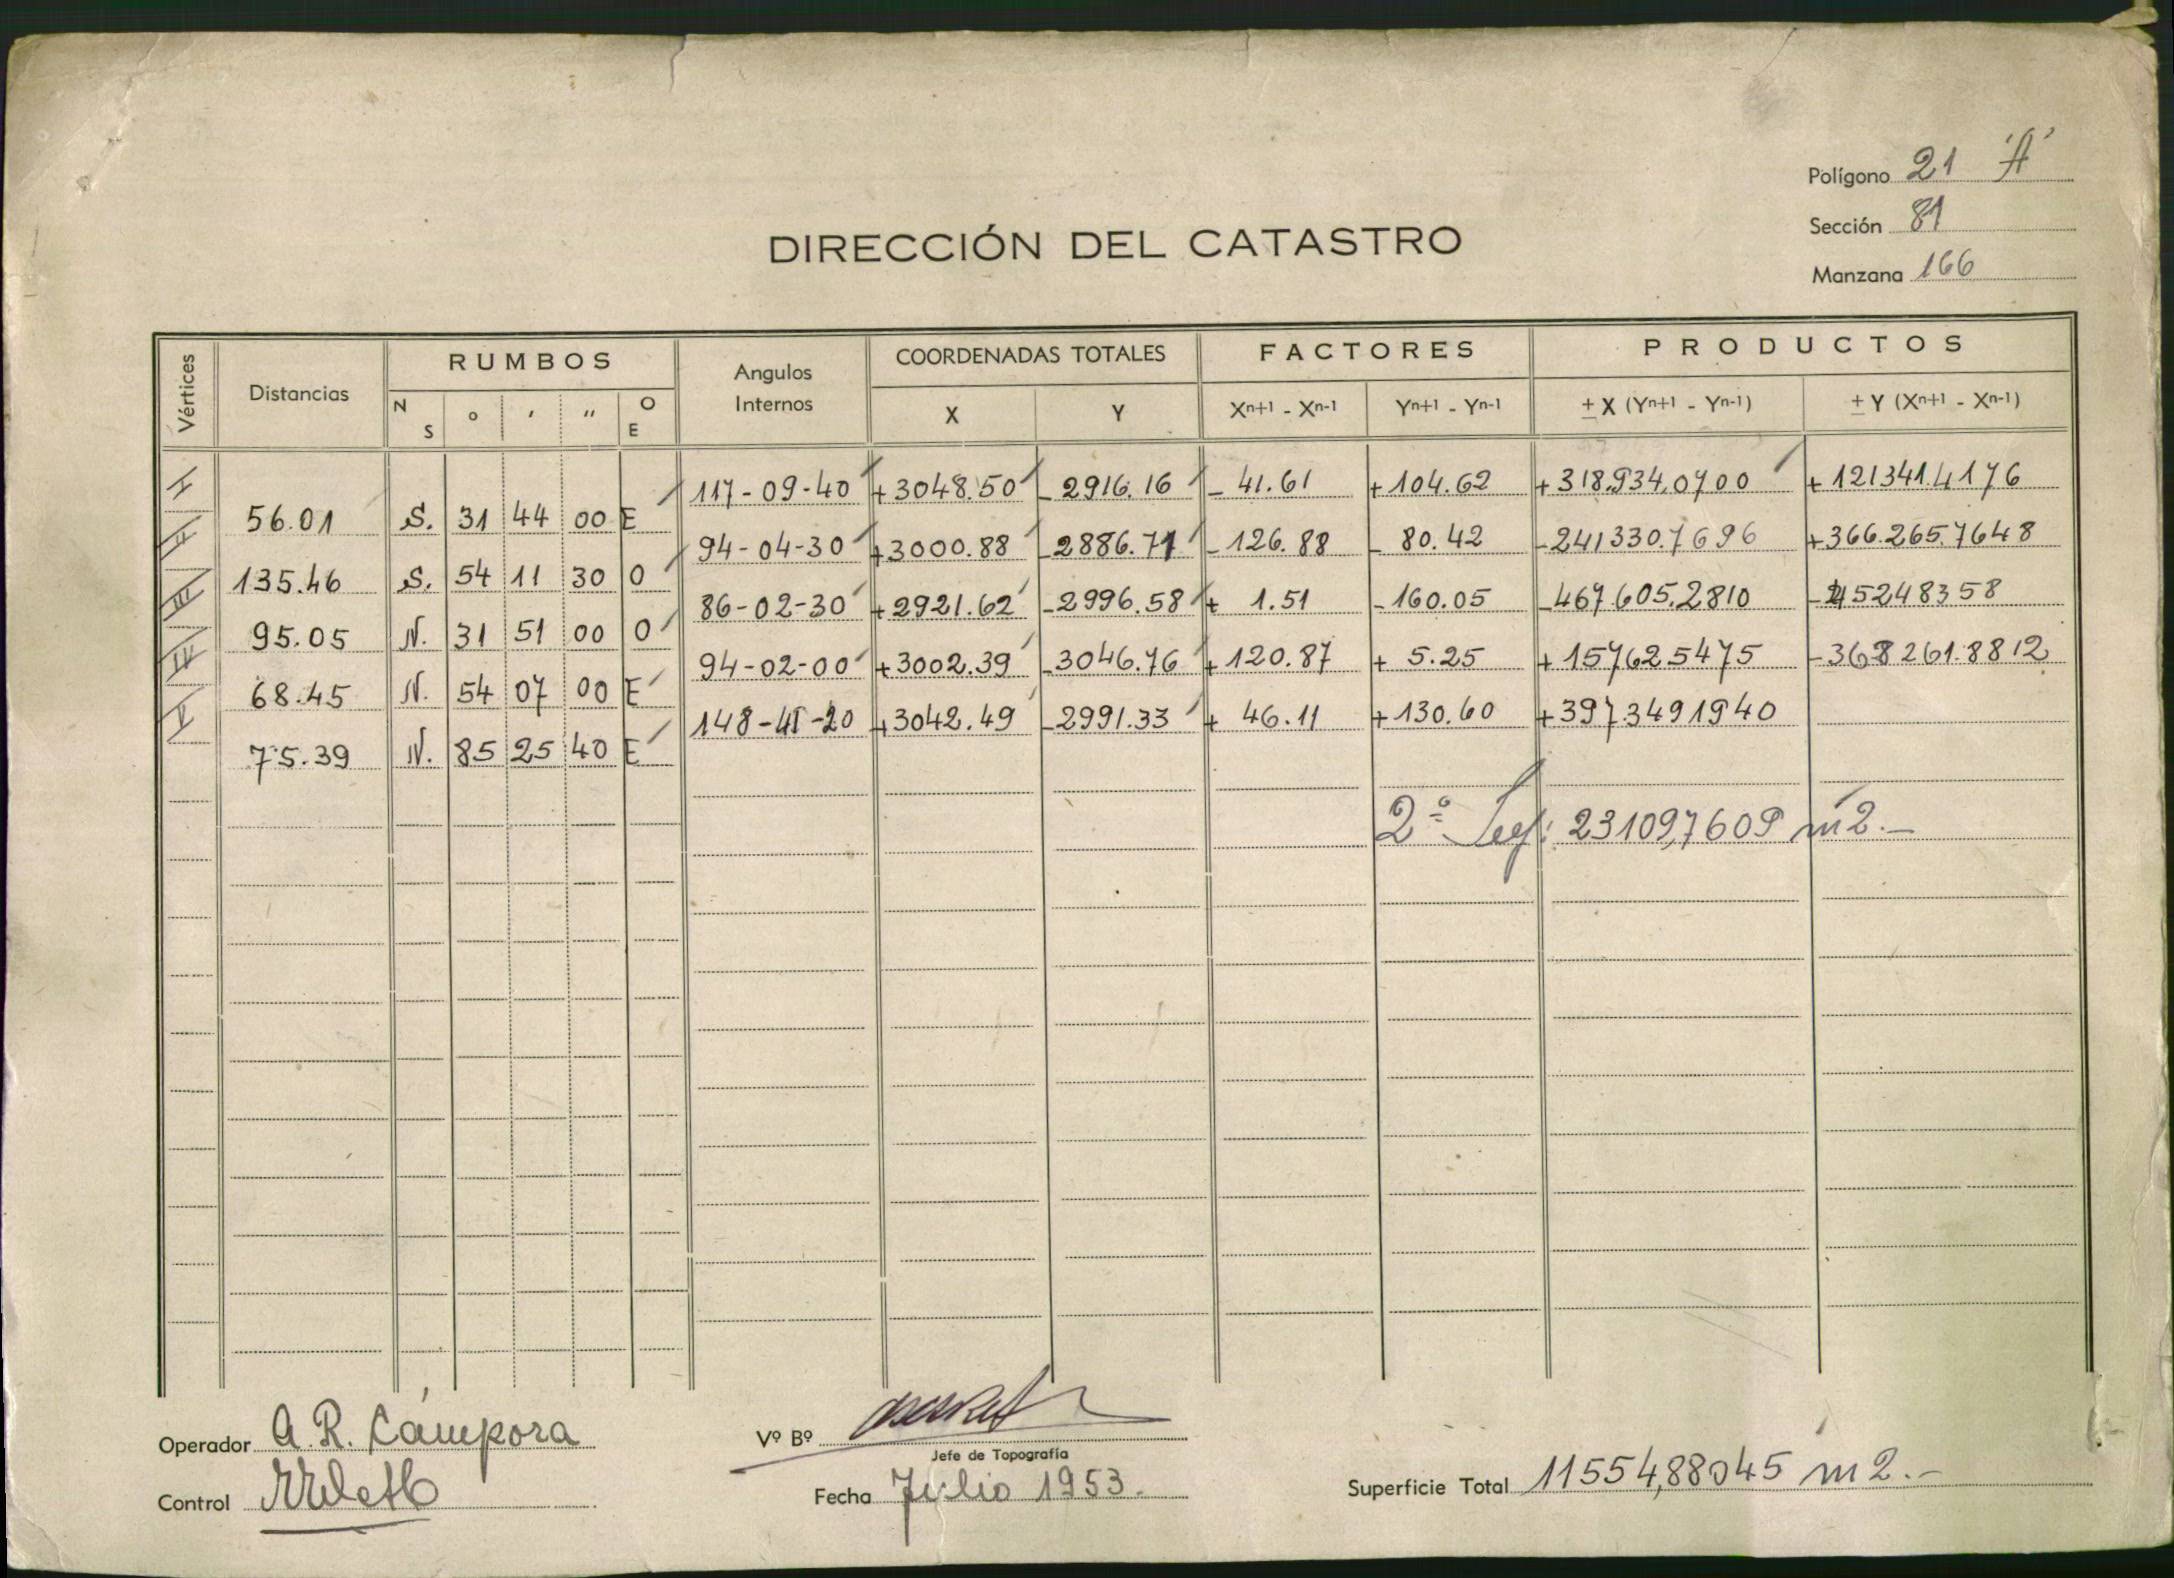 Polígono 21 'A'
Sección 81
Manzana 166
DIRECCIÓN DEL CATASTRO
Vértices Distancias RUMBOS Angulos Internos COORDENADAS TOTALES FACTORES PRODUCTOS
N S ° ' '' O E X Y Xn+1 - Xn-1 Yn+1 - Yn-1 ± X (Yn+1 - Yn-1) ± Y (Xn+1 - Xn-1)
I 117-09-40 +3048.50 -2916.16 - 41.61 +104.62 +318.934,0700 +121341.4176
56.01 S. 31 44 00 E
II 94-04-30 +3000.88 -2886.71 -126.88 - 80.42 -241330.7696 +366.265.7648
135.46 S. 54 11 30 O
III 86-02-30 +2921.62 -2996.58 + 1.51 -160.05 -467.605.2810 -45248358
95.05 N. 31 51 00 O
IV 94-02-00 +3002.39 -3046.76 +120.87 + 5.25 +157625475 -368261.8812
68.45 N. 54 07 00 E
V 148-41-20 +3042.49 -2991.33 + 46.11 +130.60 +397.3491940
75.39 N. 85 25 40 E
2º Sup: 23109,7609 m2.-
Operador A. R. Cámpora
Vº Bº
Jefe de Topografía
Control
Fecha Julio 1953.
Superficie Total 11554,88045 m2.-